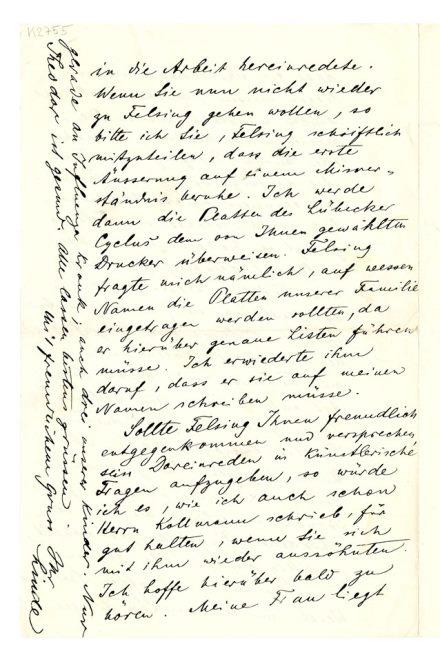 K2755
in die Arbeit hereinredete.
Wenn Sie nun nicht wieder
zu Felsing gehen wollen, so
bitte ich Sie, Felsing schriftlich
mitzuteilen, dass die erste
Äusserung auf einem Misver-
ständnis beruhe. Ich werde
dann die Platten des Lübecker
Cyclus dem von Ihnen gewählten
Drucker überweisen. Felsing
fragte mich nämlich, auf wessen
Namen die Platten unserer Familie
eingetragen werden sollten, da
er hierüber genaue Listen führen
müsse. Ich erwiederte ihm
darauf, dass er sie auf meinen
Namen schreiben müsse.
Sollte Felsing Ihnen freundlich
entgegenkommen und versprechen,
sein Dareinreden in künstlerische
Fragen aufzugeben, so würde
ich es, wie ich auch schon
Herrn Kollmann schrieb, für
gut halten, wenn Sie sich
mit ihm wieder aussöhnten.
Ich hoffe hierüber bald zu
hören. Meine Frau liegt
gerade an Influenza krank, auch drei unserer Kinder. Nur
Theodor ist gesund. Alle lassen bestens grüssen.
Mit freundlichem Gruss Ihr
Linde